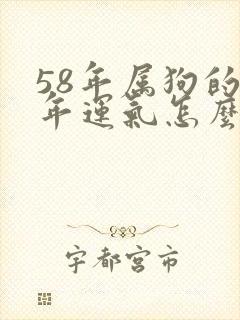 58年属狗的
年運氣怎麼
宇都宮市